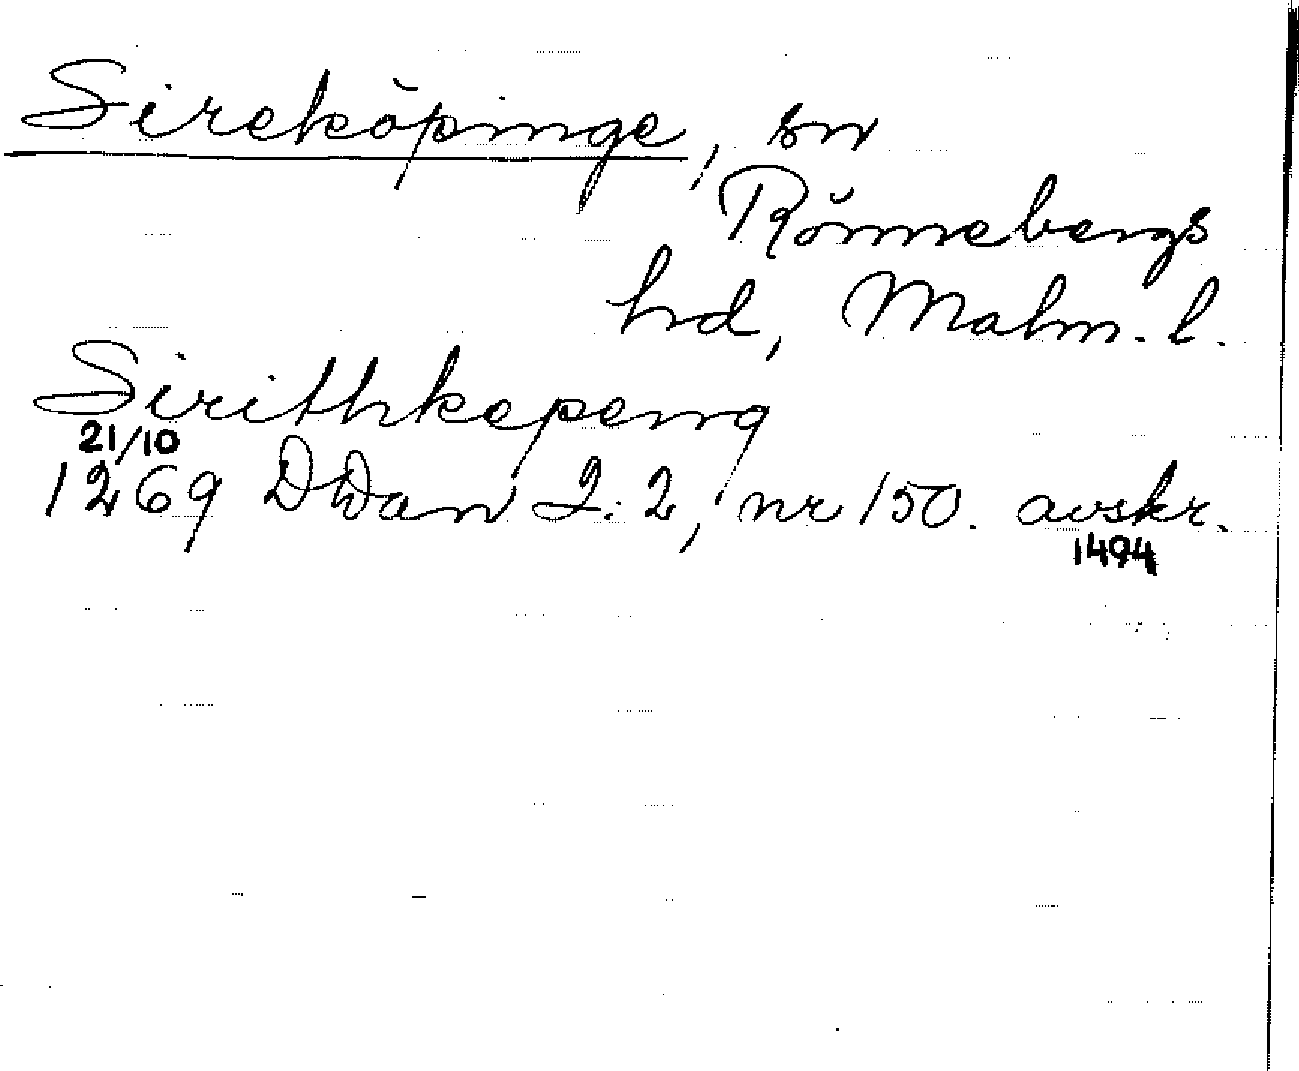 Sireköpinge, sn
Rönnebergs
hd, Malm. l.
Sirithkepeng
21/10
1269 DDan 2:2, nr 150. avskr.
1494